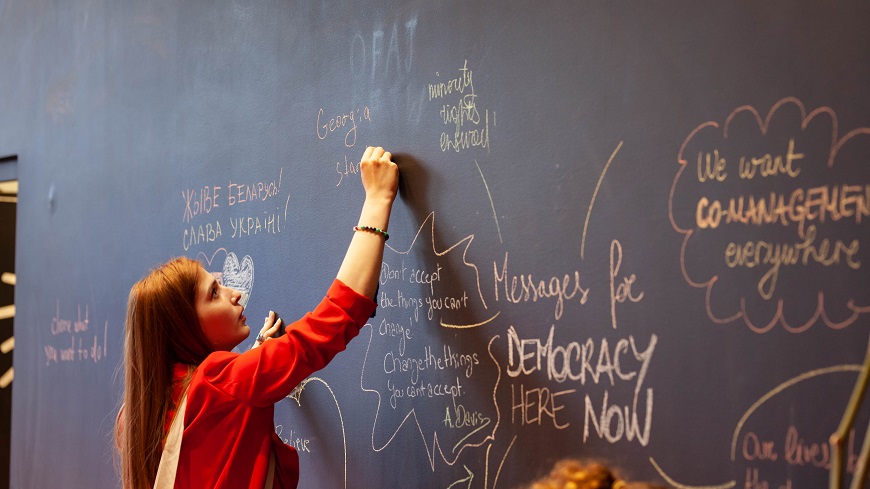 OFAJ
minority
rights
ensured!
Georgia
ЖЫВЕ БЕЛАРУСЬ!
СЛАВА УКРАЇНІ!
show what
you want to do!
Don't accept
the things you can't
change,
Change the things
You can't accept.
A. Davis
Believe
Messages for
DEMOCRACY
HERE NOW
We want
CO-MANAGEMENT
everywhere
our lives
the